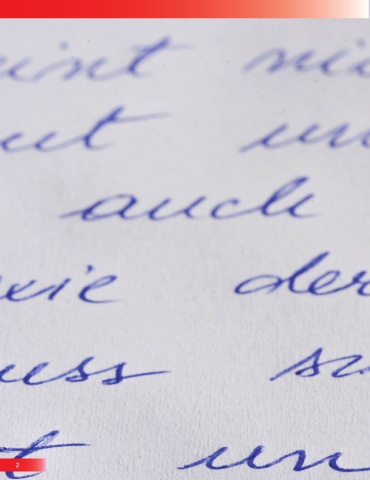 eint nic
ut un
auch
xie der
uss su
t un
2